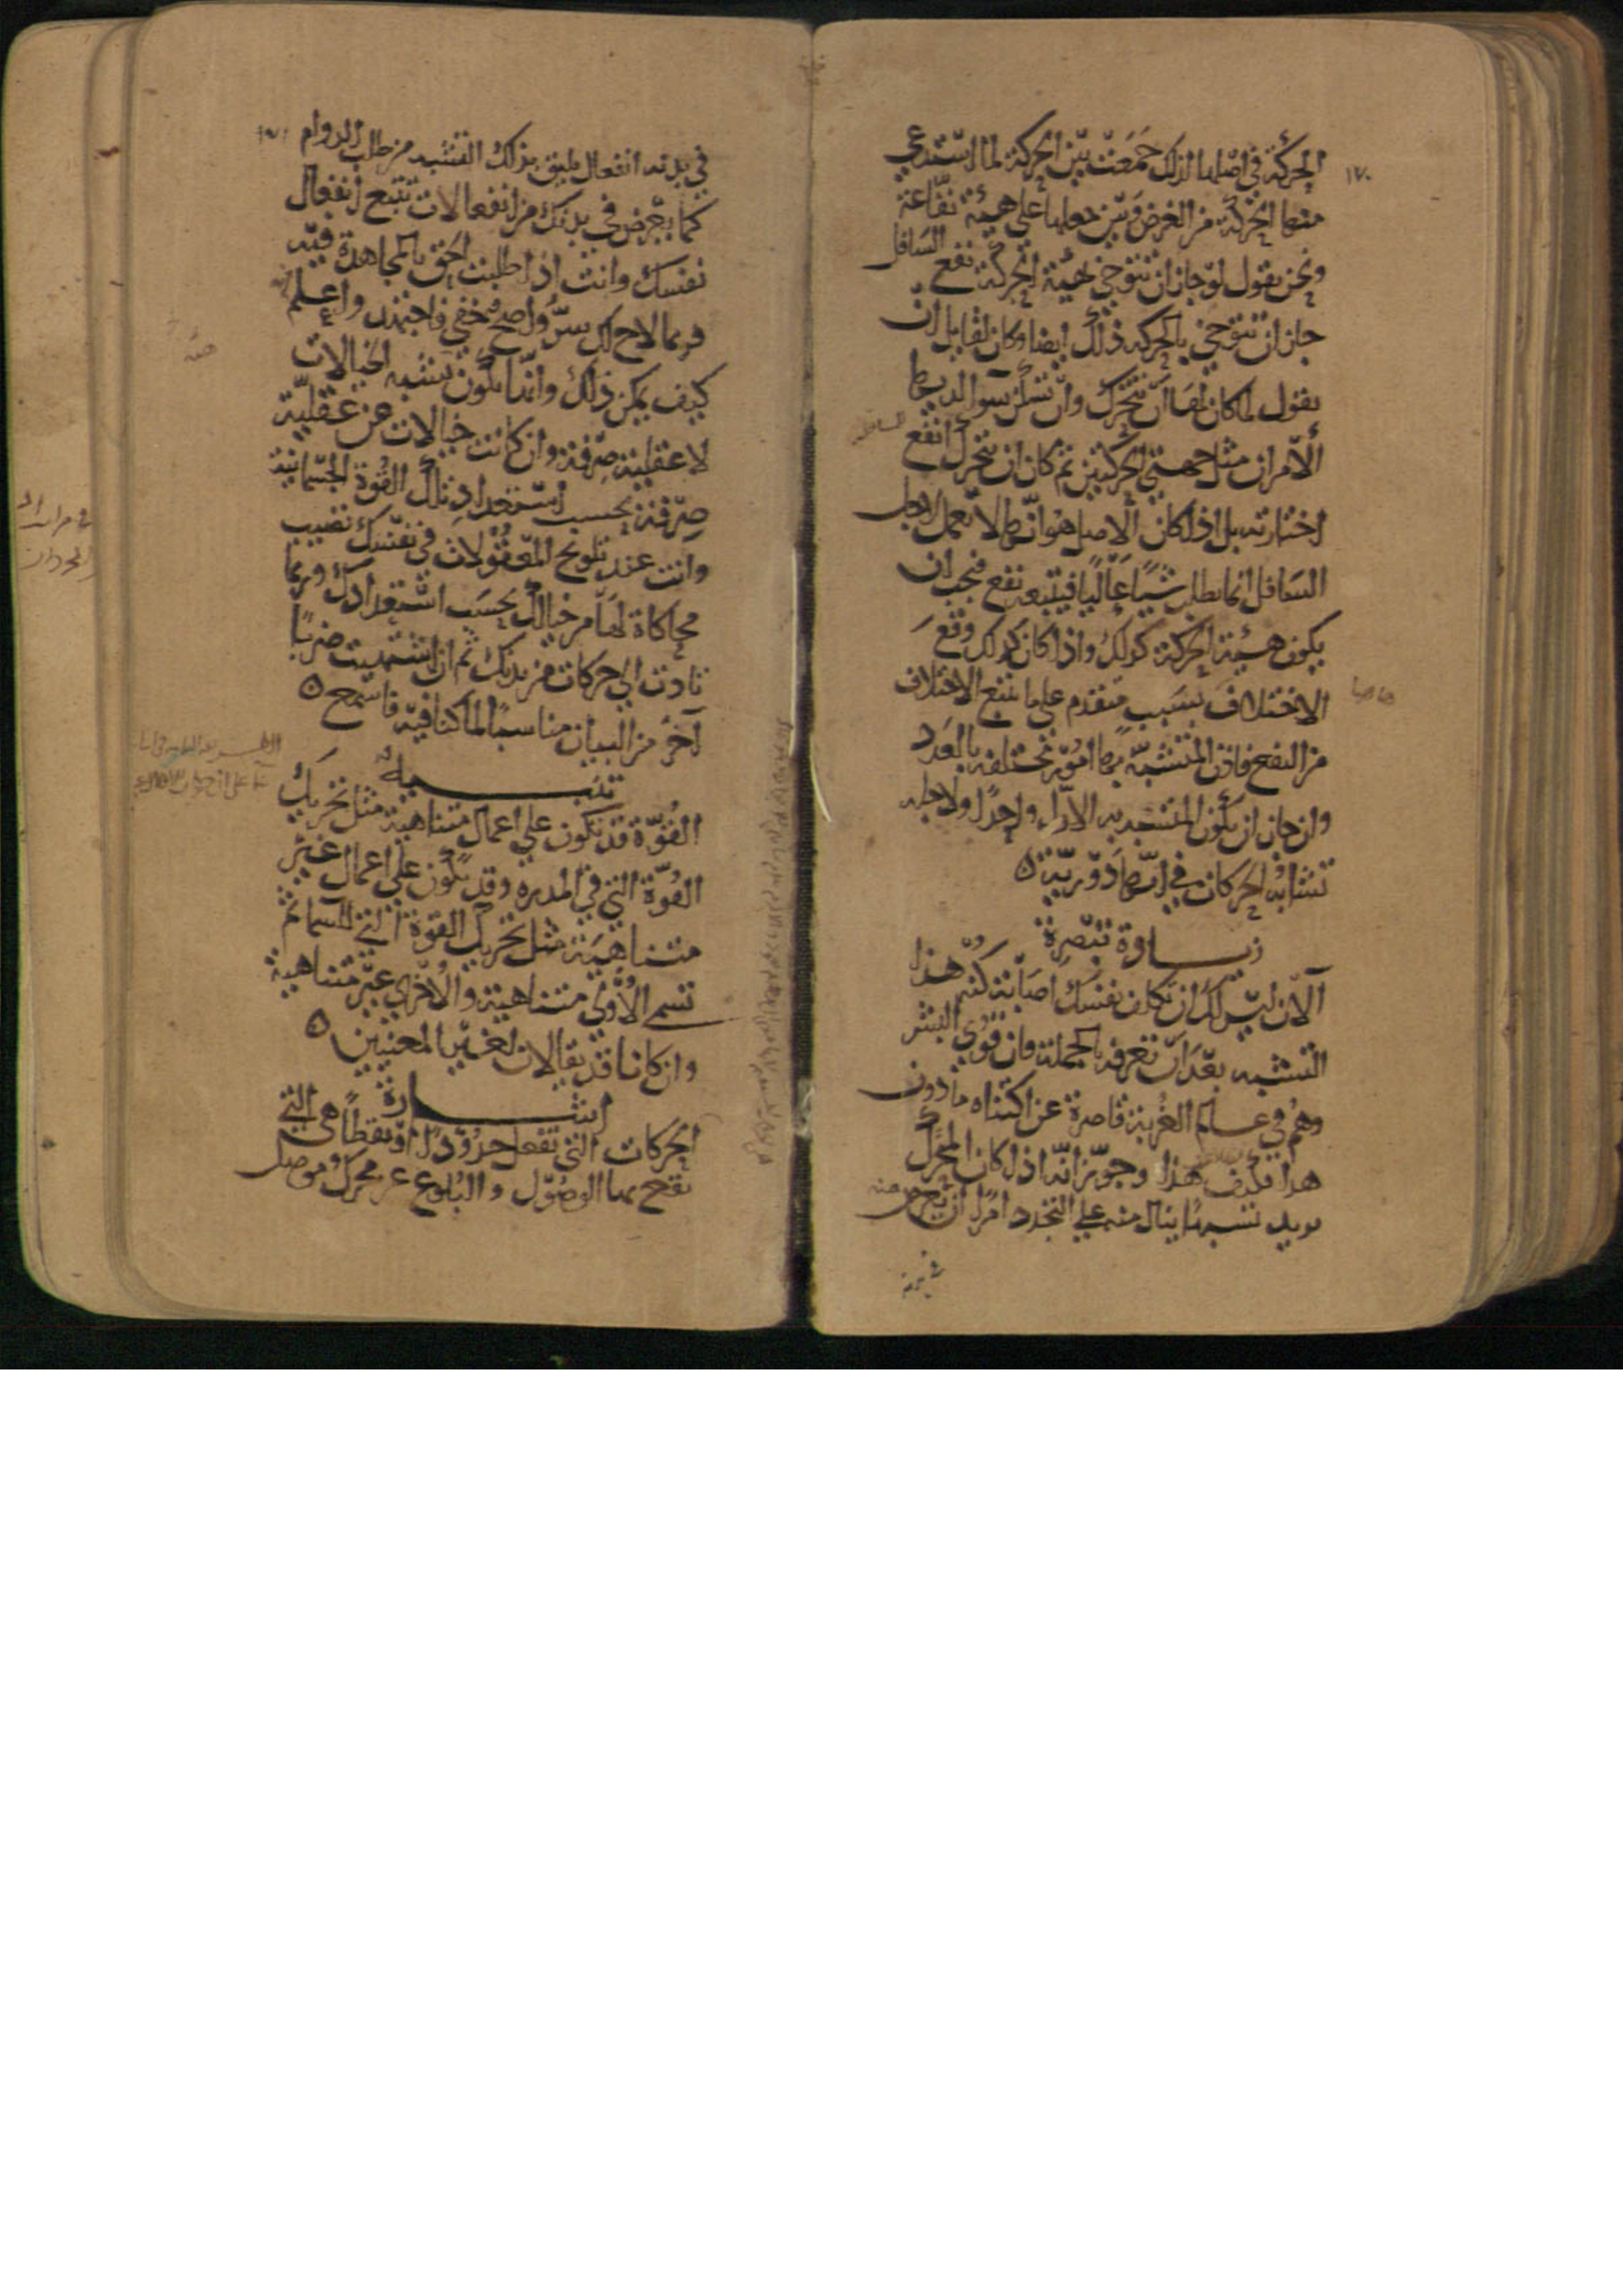 ١٧٠
الحركة في اصلها لذلك جمعت بين الحركة لما استدعي
منها الحركة من الغرض وبين جعلها علي هيئة نفّاعة
ونحن نقول لو جاز ان تتوخي بهيئة الحركة نفع السافل
جاز ان تتوخي بالحركة ذلك ايضا وكان لقايل ان
يقول لما كان لها ان تتحرك وان تسكن سوا لديها
الامران مثل جهتي الحركتين ثم كان ان تتحرك انفع
اختارته بل اذا كان الاصل هو انها لا تعمل لاجل
السافل انما تطلب شيئا عاليا فيتبعه نفع فيجب ان
يكون هيئة الحركة كذلك واذا كان كذلك وقع
الاختلاف بسبب متقدم علي ما يتبع الاختلاف
من النفع فاذن المتشبه بها امور مختلفة بالعدد
وان جاز ان يكون المتشبه به الاول واحدا ولاجله
تشابه الحركات في انها دورية ٥
زيادة تبصرة
الآن ليس لك ان تكلف نفسك اصابة كنه هذا
التشبه بعد ان تعرفه بالجملة فان قوي البشر
وهم في عالم الغربة قاصرة عن اكتناه ما دون
هذا فكيف هذا وجوز انه اذا كان المحرك
يريد تشبها ينال منه علي التجدد امرا ان يعرض منه
في بدنه
في بدنه انفعال يليق بذلك التشبه من طلب الدوام
كما يعرض في بدنك من انفعالات تتبع انفعال
نفسك وانت اذا طلبت الحق بالمجاهدة فيه
فربما لاح لك سر واضح خفي فاجتهد واعلم
كيف يمكن ذلك وانها يكون تشبه الخيالات
لا عقلية صرفة وان كانت خيالات عن عقلية
صرفة بحسب استعداد تلك القوة الجسمانية
وانت عند تلويح المعقولات في نفسك تصيب
محاكاة لها من خيالك بحسب استعدادك وربما
تادت الي حركات من بدنك ثم ان اشتهيت ضربا
آخر من البيان مناسبا لما كنا فيه فاسمع ٥
تنبيه
القوة قد تكون علي اعمال متناهية مثل تحريك
القوة التي في المدرة وقد يكون علي اعمال غير
متناهية مثل تحريك القوة التي للسما ثم
تسمي الاولي متناهية والاخري غير متناهية
وان كانا قد يقالان لغير المعنيين ٥
اشارة
الحركات التي تفعل حدودا او نقطا هي التي
يقع بها الوصول والبلوغ عن محرك موصل